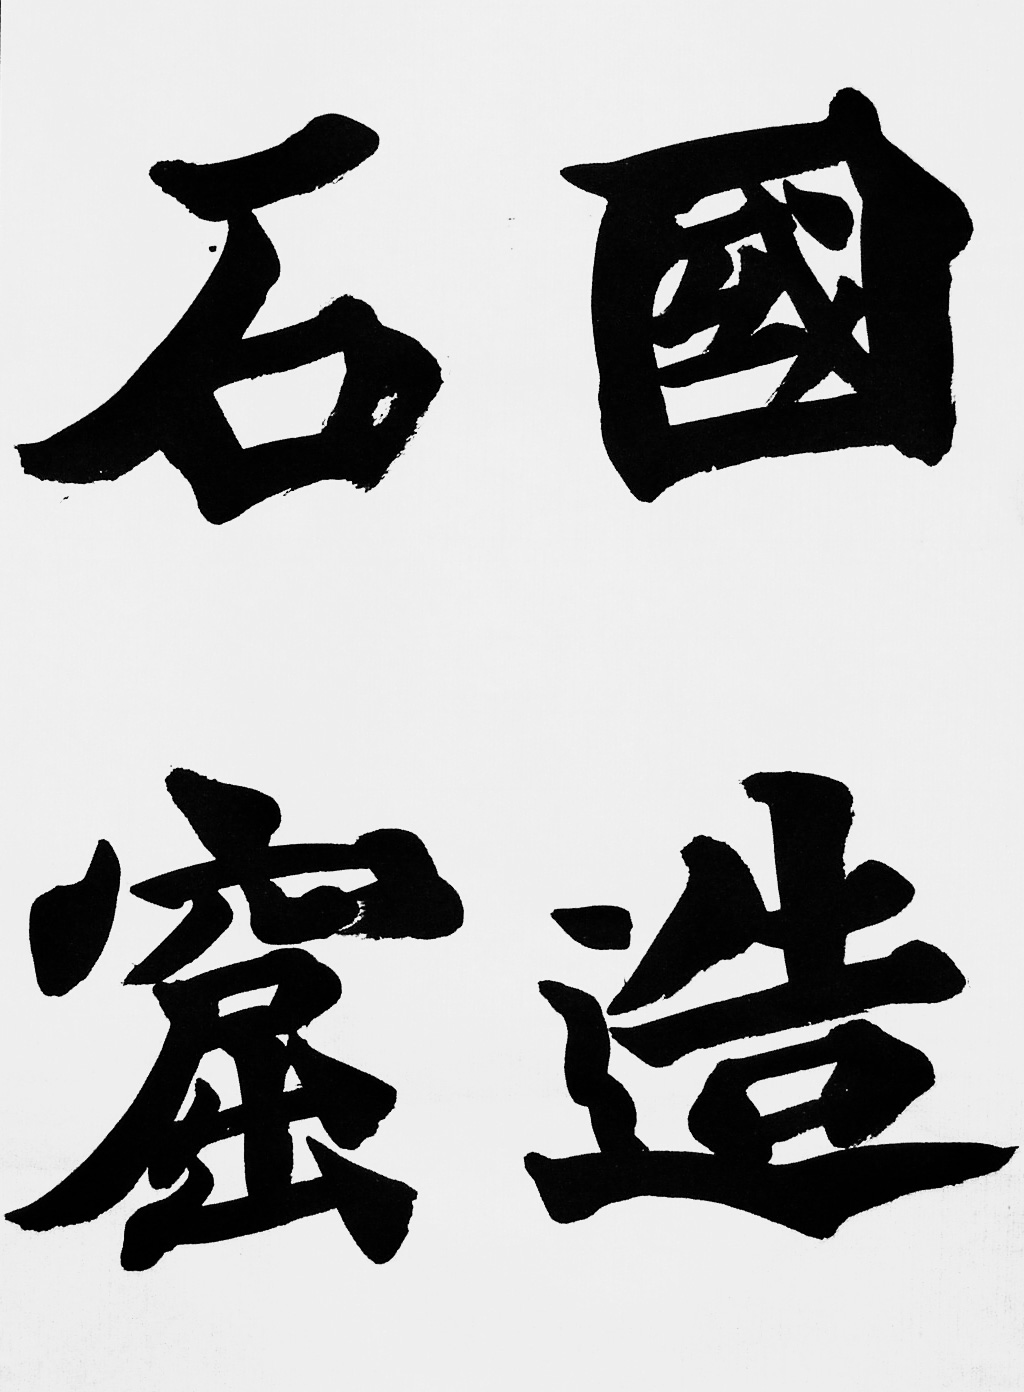 國造
石窟